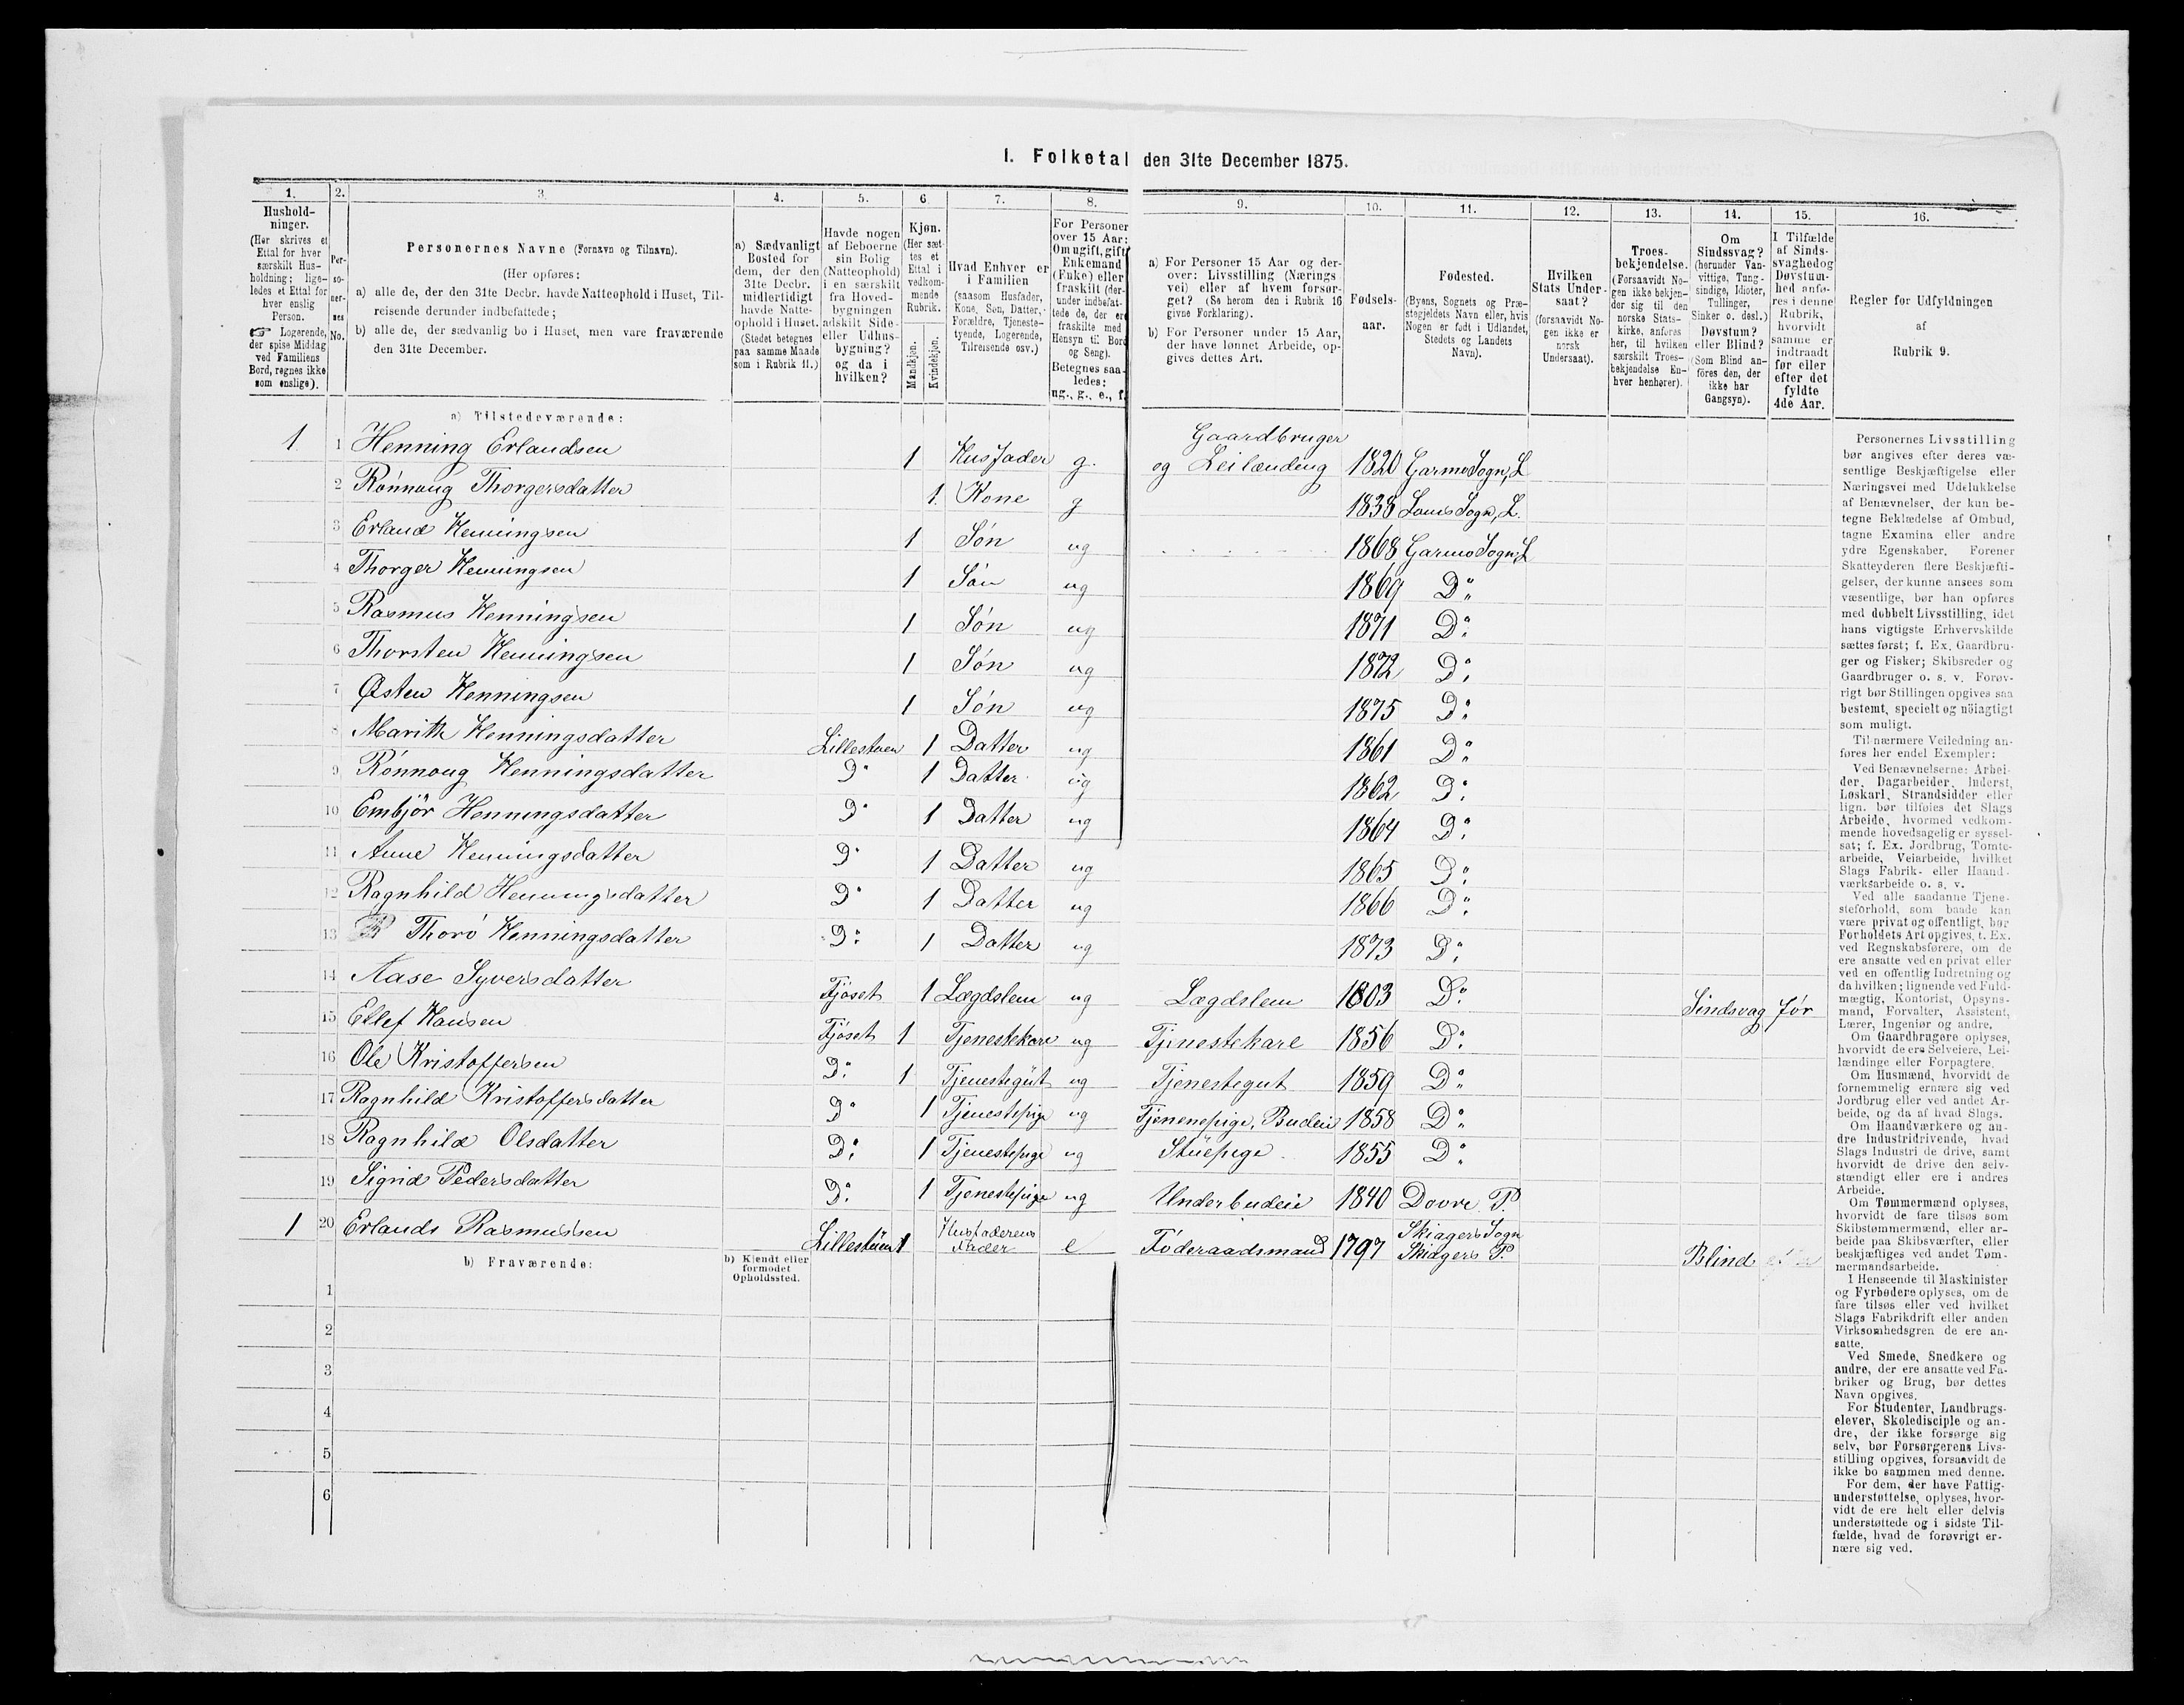 I. Folketal den 31te December 1875.
1. 2. 3. 4. 5. 6. 7. 8. 9. 10. 11. 12. 13. 14. 15. 16.
Hushold-
ninger.
(Her skrives et
Ettal for hver
særskilt Hus-
holdning; lige-
ledes et Ettal for
hver enslig
Person.
☞ Logerende,
der spise Middag
ved Familiens
Bord, regnes ikke
som enslige).
Per-
so-
ner-
nes
No.
Personernes Navne (Fornavn og Tilnavn).
(Her opføres:
a) alle de, der den 31te Decbr. havde Natteophold i Huset, Til-
reisende derunder indbefattede;
b) alle de, der sædvanlig bo i Huset, men vare fraværende
den 31te December.
a) Sædvanligt
Bosted for
dem, der den
31te Decbr.
midlertidigt
havde Natte-
ophold i Huset.
(Stedet betegnes
paa samme Maade
som i Rubrik 11.)
Havde nogen
af Beboerne
sin Bolig
(Natteophold)
i en særskilt
fra Hoved-
bygningen
adskilt Side-
eller Udhus-
bygning?
og da i
hvilken?
Kjøn.
(Her sæt-
tes et
Ettal i
vedkom-
mende
Rubrik.
Mandkjøn.
Kvindekjøn.
Hvad Enhver er
i Familien
(saasom Husfader,
Kone, Søn, Datter,
Forældre, Tjeneste-
tyende, Logerende,
Tilreisende osv.)
For Personer
over 15 Aar:
Om ugift, gift,
Enkemand
(Enke) eller
fraskilt (der-
under indbefat-
tede de, der ere
fraskilte med
Hensyn til Bord
og Seng).
Betegnes saa-
ledes:
ug., g., e., f.
a) For Personer 15 Aar og der-
over: Livsstilling (Nærings
vei) eller af hvem forsør-
get? (Se herom den i Rubrik 16
givne Forklaring).
b) For Personer under 15 Aar,
der have lønnet Arbeide, op-
gives dettes Art.
Fødsels-
aar.
Fødested.
(Byens, Sognets og Præ-
stegjeldets Navn eller, hvis
Nogen er født i Udlandet,
Stedets og Landets
Navn).
Hvilken
Stats Under-
saat?
(forsaavidt No-
gen ikke er
norsk
Undersaat).
Troes-
bekjendelse.
(Forsaavidt No-
gen ikke bekjen-
der sig til den
norske Stats-
kirke, anføres
her, til hvilken
særskilt Troes-
bekjendelse En-
hver henhører).
Om
Sindssvag?
(herunder Van-
vittige, Tung-
sindige, Idioter,
Tullinger,
Sinker o. desl.)
Døvstum?
eller Blind?
(Som Blind an-
føres den, der
ikke har
Gangsyn).
I Tilfælde
af Sinds-
svaghed og
Døvstum-
hed anfø-
res i denne
Rubrik,
hvorvidt
samme er
indtraadt
før eller
efter det
fyldte
4de Aar.
Regler for Udfyldningen
af
Rubrik 9.
a) Tilstedeværende:
1 1 Henning Erlandsen 1 Husfader g. Gaardbruger
og Leilænding 1820 Garmo Sogn, L
2 Rönnoug Thorgersdatter 1. Kone g 1838 Loms Sogn, L.
3 Erland Henningsen 1 Søn ug 1868 Garmo Sogn, L
4 Thorger Henningsen 1 Søn ug 1869 Do
5 Rasmus Henningsen 1 Søn ug 1871 Do
6 Thorsten Henningsen 1 Søn ug 1872 Do
7 Østen Henningsen 1 Søn ug 1875 Do
8 Marith Henningsdatter Lillestuen 1 Datter ug 1861 Do
9 Rönnoug Henningsdatter Do 1 Datter ug 1862 Do
10 Embjör Henningsdatter Do 1 Datter ug 1864 Do
11 Anne Henningsdatter Do 1 Datter ug 1865 Do
12 Ragnhild Henningsdatter Do 1 Datter ug 1866 Do
13 Thorö Henningsdatter Do 1 Datter ug 1873 Do
14 Aase Syversdatter Fjöset 1 Lægdslem ug Lægdslem 1803 Do Sindsvag før
15 Ellef Hansen Fjöset 1 Tjenestekare ug Tjenestekare 1856 Do
16 Ole Kristoffersen Do 1 Tjenestegut ug Tjenestegut 1859 Do
17 Ragnhild Kristoffersdatter Do 1 Tjenestepige ug Tjenenepige, Budeie 1858 Do
18 Ragnhild Olsdatter Do 1 Tjenestepige ug Stuepige. 1855 Do
19 Sigrid Pedersdatter Do 1 Tjenestepige ug Underbudeie 1840 Dovre P.
1 20 Erlands Rasmussen Lillestuen 1 Husfaderens
Fader e Föderaadsmand 1797 Skiagers Sogn
Skiagers P. Blind
b) Fraværende:
b) Kjendt eller
formodet
Opholdssted.
1
2
3
4
5
6
Personernes Livsstilling
bør angives efter deres væ-
sentlige Beskjæftigelse eller
Næringsvei med Udelukkelse
af Benævnelser, der kun be-
tegne Beklædelse af Ombud,
tagne Examina eller andre
ydre Egenskaber. Forener
Skatteyderen flere Beskjæfti-
gelser, der kunne ansees som
væsentlige, bør han opføres
med dobbelt Livsstilling, idet
hans vigtigste Erhvervskilde
sættes først; f. Ex. Gaardbru-
ger og Fisker; Skibsreder og
Gaardbruger o. s. v. Forøv-
rigt bør Stillingen opgives saa
bestemt, specielt og nöiagtigt
som muligt.
Til nærmere Veiledning an-
føres her endel Exempler:
Ved Benævnelserne: Arbei-
der, Dagarbeider, Inderst,
Løskarl, Strandsidder eller
lign. bør tilføies det Slags
Arbeide, hvormed vedkom-
mende hovedsagelig er syssel-
sat; f. Ex. Jordbrug, Tomte-
arbeide, Veiarbeide, hvilket
Slags Fabrik- eller Haand-
værksarbeide o. s. v.
Ved alle saadanne Tjene-
steforhold, som baade kan
være privat og offentligt, bør
Forholdets Art opgives, f. Ex.
ved Regnskabsførere, om de
ere ansatte ved en privat eller
ved en offentlig Indretning og
da hvilken; lignende ved Fuld-
mægtig, Kontorist, Opsyns-
mand, Forvalter, Assistent,
Lærer, Ingeniør og andre.
Om Gaardbrugere oplyses,
hvorvidt de ere Selveiere, Lei-
lændinge eller Forpagtere.
Om Husmænd, hvorvidt de
fornemmelig ernære sig ved
Jordbrug eller ved andet Ar-
beide, og da af hvad Slags.
Om Haandværkere og an-
dre Industridrivende, hvad
Slags Industri de drive, samt
hvorvidt de drive den selv-
stændigt eller ere i andres
Arbeide.
Om Tømmermænd oplyses,
hvorvidt de fare tilsøs som
Skibstømmermænd, eller ar-
beide paa Skibsværfter, eller
beskjæftiges ved andet Tøm-
mermandsarbeide.
I Henseende til Maskinister
og Fyrbødere oplyses, om de
fare tilsøs eller ved hvilket
Slags Fabrikdrift eller anden
Virksomhedsgren de ere an-
satte.
Ved Smede, Snedkere og
andre, der ere ansatte ved Fa-
briker og Brug, bør dettes
Navn opgives.
For Studenter, Landbrugs-
elever, Skoledisciple og an-
dre, der ikke forsørge sig
selv, bør Forsørgerens Livs-
stilling opgives, forsaavidt de
ikke bo sammen med denne.
For dem, der have Fattig-
understøttelse, oplyses, hvor-
vidt de ere helt eller delvis
understøttede og i sidste Til-
fælde, hvad de forøvrigt er-
nære sig ved.